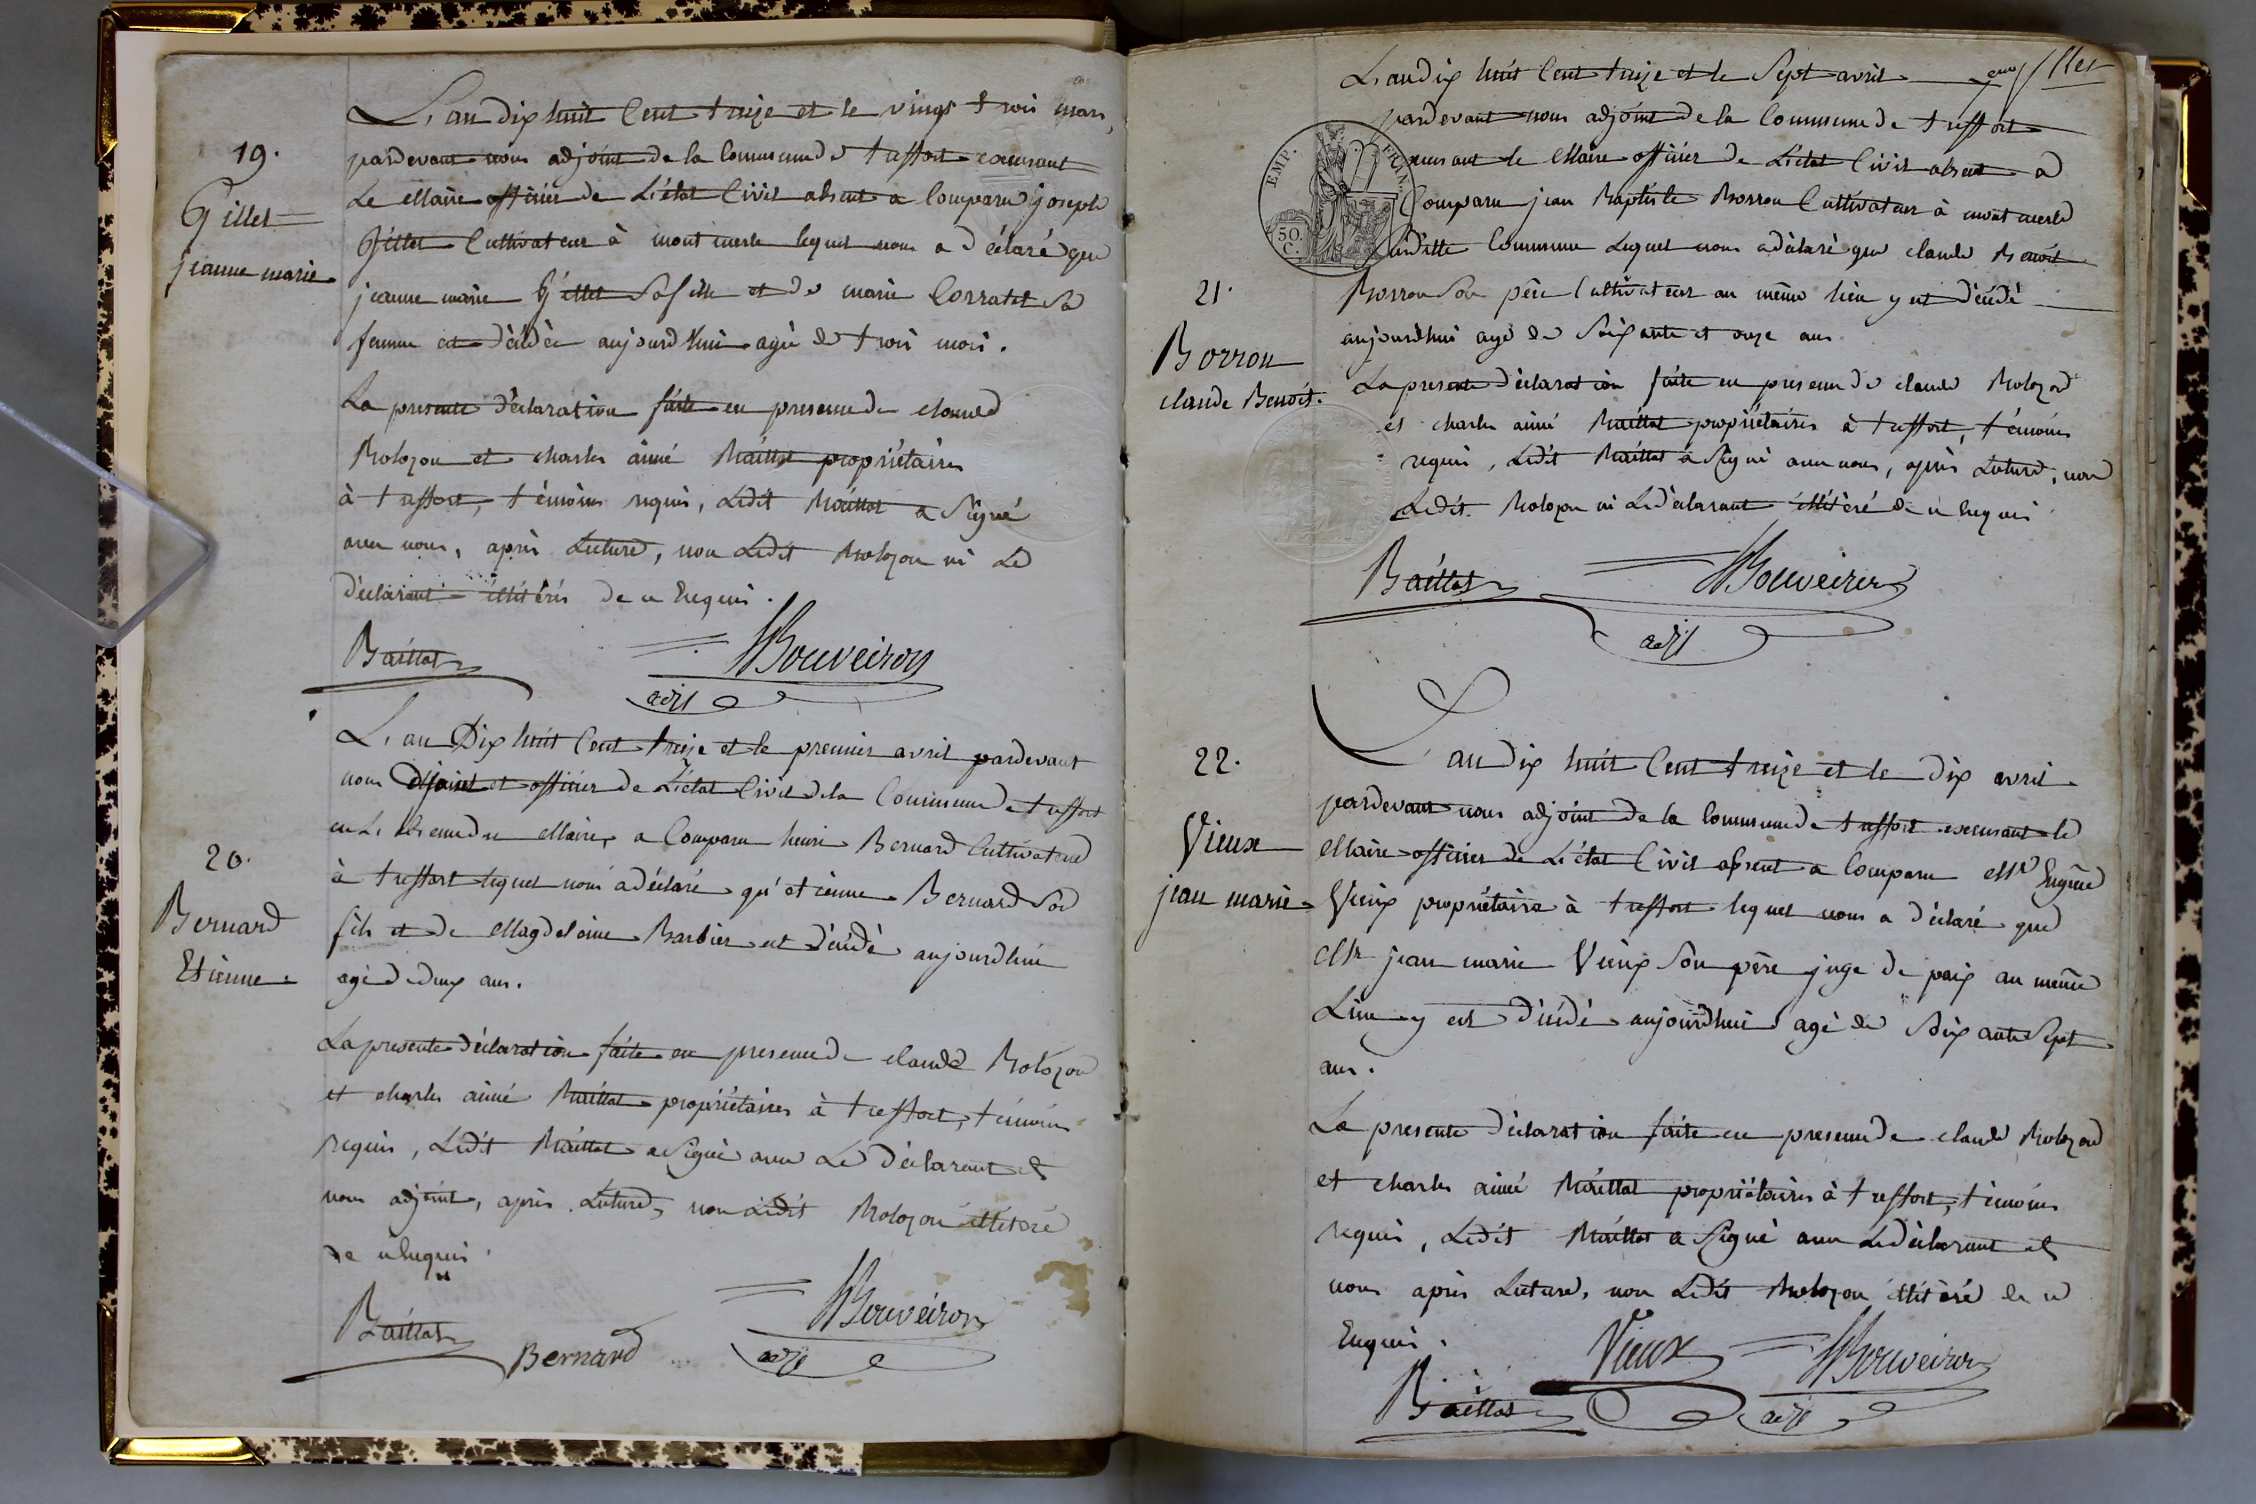 19.
Gillet
jeanne marie
L'an dix huit Cent treize et le vingt trois mars,
pardevant nous adjoint de la Commune de treffort exerçant
Le Maire officier de L'état Civil absent a Comparu joseph
Gillet Cultivateur à mont merle lequel nous a déclaré que
jeanne marie Gillet Sa fille et de marie Corratet Sa
femme est décédée aujourd'hui agée de trois mois.
La presente déclaration faite en presence de claude
Bolozon et charles aimé Baillat propriétaires
à treffort, témoins requis, Ledit Baillat a Signé
avec nous, après Lecture, non Ledit Bolozon ni Le
déclarant illitérés de ce Enquis.
Baillat Bouveiron
adjt
20.
Bernard
Etienne.
L'an Dix huit Cent treize et le premier avril pardevant
nous adjoint et officier de L'état Civil de la Commune de treffort
en L'absence du Maire, a Comparu henri Bernard Cultivateur
à treffort lequel nous a déclaré qu'etienne Bernard Son
fils et de Magdelaine Barbier est décédé aujourdhui
agé de deux ans.
La presente déclaration faite en presence de claude Bolozon
et charles aimé Baillat propriétaires à treffort, témoins
requis, Ledit Baillat a Signé avec Le déclarant et
nous adjoint, après Lecture, non Ledit Bolozon illitéré
de ce Enquis.
Baillat Bernard Bouveiron
adjt
L'an dix huit Cent treize et le Sept avril
pardevant nous adjoint de la Commune de treffort
exerçant le Maire officier de L'état Civil absent a
Comparu jean Baptiste Borron Cultivateur à mont merle
Suditte Commune Lequel nous a déclaré que claude Benoit
Borron Son père Cultivateur au même lieu y est décédé
aujourdhui agé de Soixante et onze ans
La presente déclaration faite en presence de claude Bolozon
et charles aimé Baillat propriétaires à treffort, témoins
requis, Ledit Baillat a Signé avec nous, après Lecture, non
Ledit Bolozon ni Le déclarant illitéré de ce Enquis
EMP. FRAN.
50.
C.
21.
Borron
claude Benoit.
Baillat Bouveiron
adjt
22.
Vieux
jean marie
L'an dix huit Cent treize et le dix avril
pardevant nous adjoint de la Commune de treffort exerçant le
Maire officier de L'état Civil absent a Comparu Mr Eugène
Vieux propriétaire à treffort lequel nous a déclaré que
Mr jean marie Vieux Son père juge de paix au même
Lieu y est décédé aujourdhui agé de Soixante Sept
ans.
La presente déclaration faite en presence de claude Bolozon
et charles aimé Baillat propriétaires à treffort, témoins
requis, Ledit Baillat a Signé avec Le déclarant et
nous après Lecture, non Ledit Bolozon illitéré de ce
Enquis.
Vieux Bouveiron
Baillat adjt